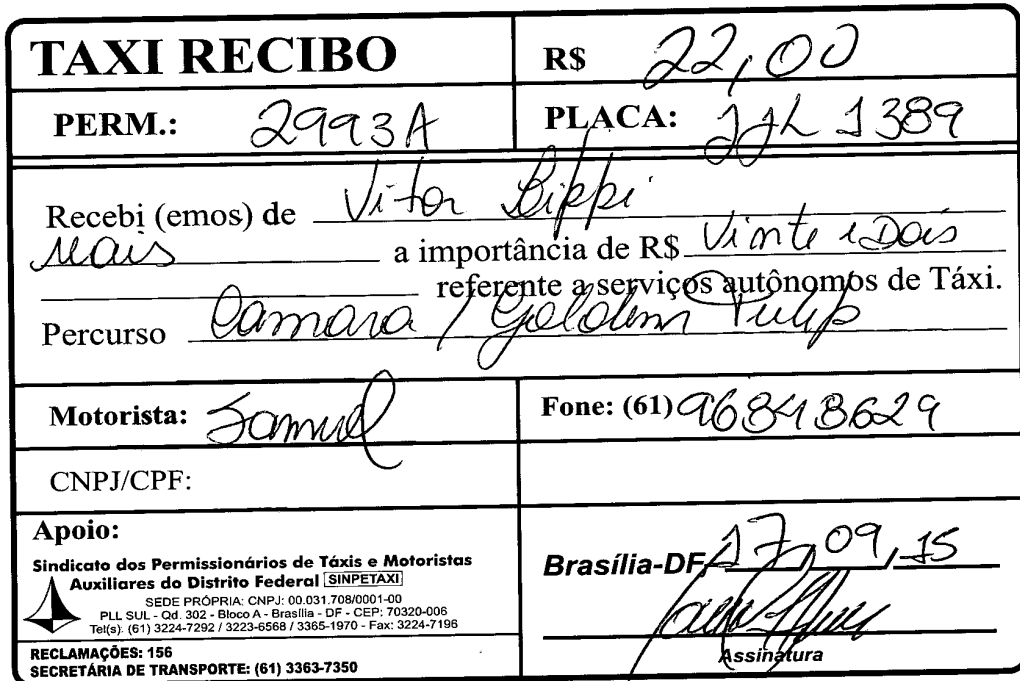 TAXI RECIBO R$ 22,00
PERM.: 2993A PLACA: JJL 1389
Recebi (emos) de Vitor Lippi
Mais a importância de R$ Vinte e Dois
referente a serviços autônomos de Táxi.
Percurso Camara / Goldem Tulip
Motorista: Samuel Fone: (61) 96848629
CNPJ/CPF:
Apoio:
Sindicato dos Permissionários de Táxis e Motoristas
Auxiliares do Distrito Federal SINPETAXI
SEDE PRÓPRIA: CNPJ: 00.031.708/0001-00
PLL SUL - Qd. 302 - Bloco A - Brasília - DF - CEP: 70320-006
Tel(s): (61) 3224-7292 / 3223-6568 / 3365-1970 - Fax: 3224-7196
Brasília-DF 17, 09, 15
Assinatura
RECLAMAÇÕES: 156
SECRETÁRIA DE TRANSPORTE: (61) 3363-7350